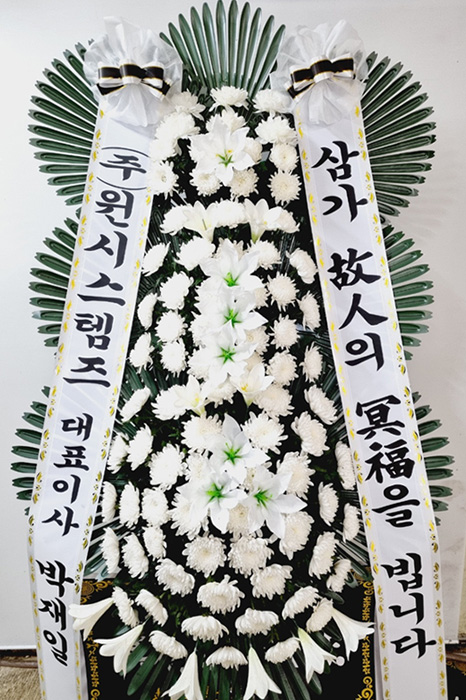 (주)원시스템즈 대표이사 박재일
삼가 故人의 冥福을 빕니다